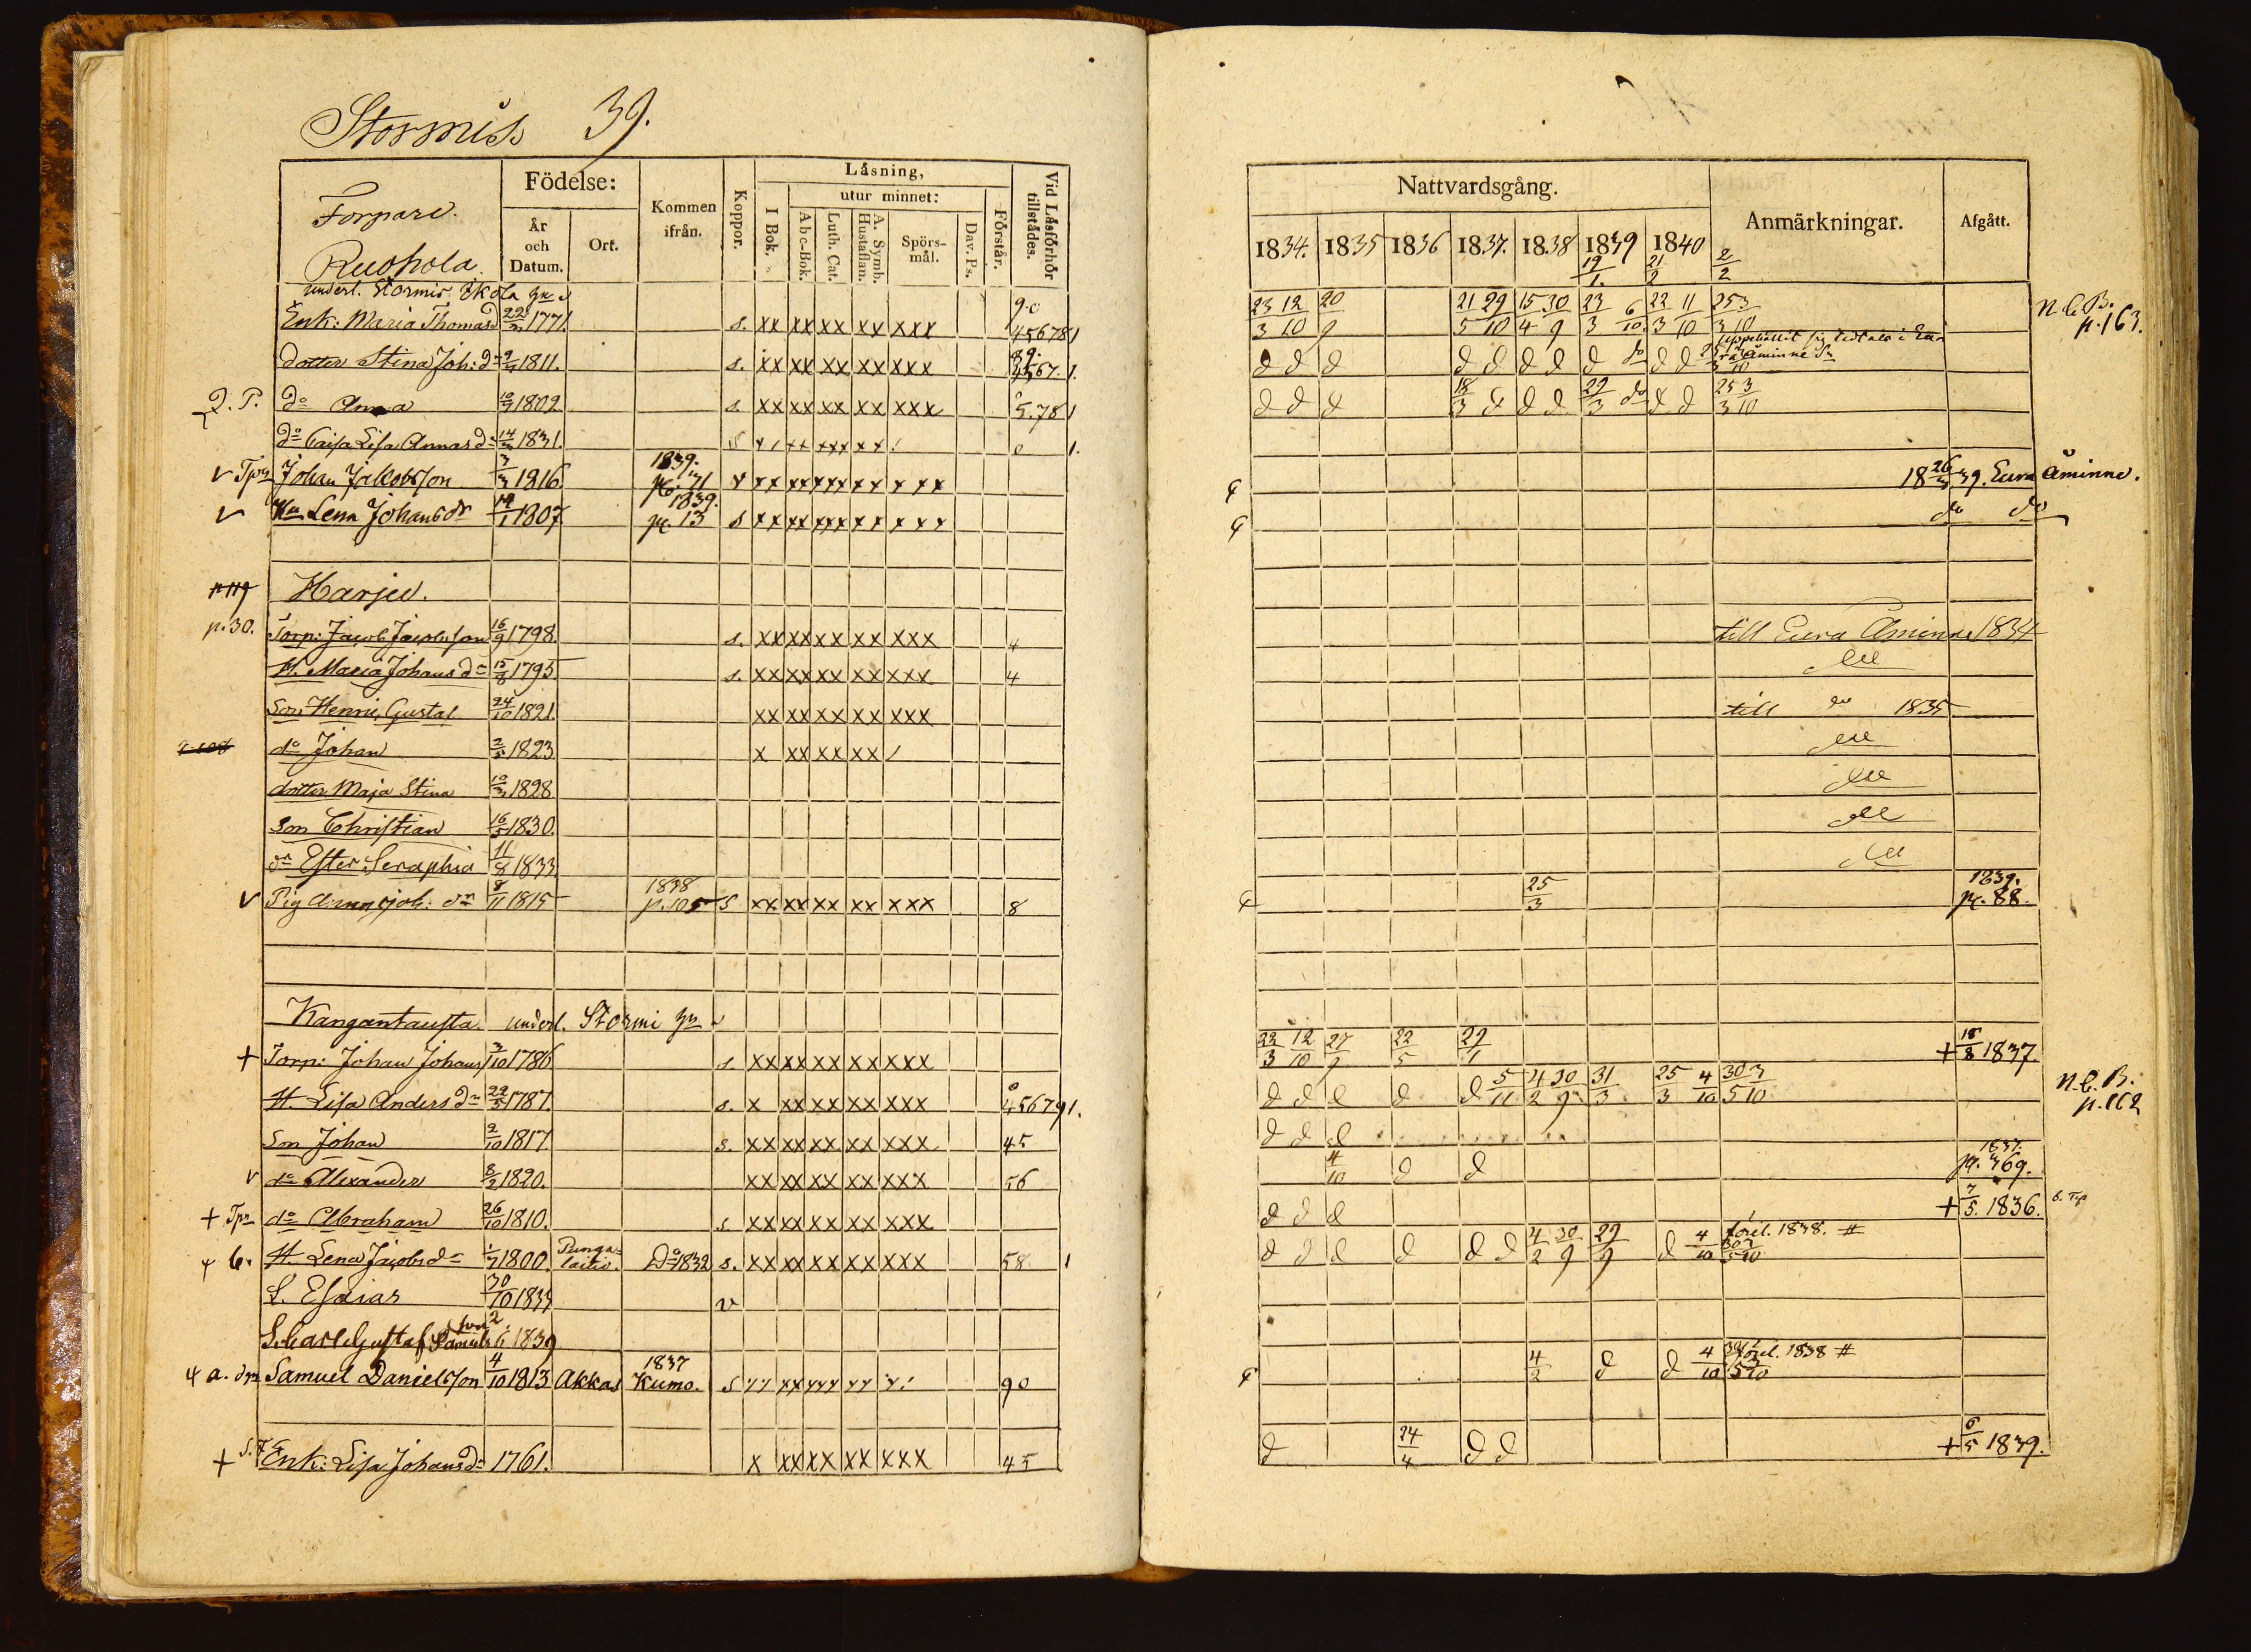 Stormis 39.
Torpare.
Födelse: Kommen ifrån. Koppor. Läsning, Vid Läsförhör tillstädes.
År och Datum. Ort. I Bok. utur minnet: Förstår.
Abc-Bok. Luth. Cat. A. Symb. Hustaflan. Spörsmål. Dav. Ps.
Nattvardsgång. Anmärkningar. Afgått.
1834. 1835 1836 1837. 1838 1839 1840
19/1. 21/2 2/2
Ruohola
underl. Stormis
Enk: Maria Thomasd 1771. s. xx xx xx xx xxx 45678 1 23/3 12/10 20/9 21/5 29/10 15/4 30/9 23/3 6/10 22/3 11/10 25/3 3/10 N.C.B. p. 163.
dotter Stina Joh: dr 1811. s. xx xx xx xx xxx 4567. 1. d d d d d d d d do d d
do Anna 10/7 1802 s. xx xx xx xx xxx 5.78 1 d d d 18/3 d d d 29/3 do d d 25/3 3/10
do Caisa Lisa Annas dr 14/3 1831. s 0 1.
v Johan Jakobsson 1816. 1839. v xx xx xxx xx x xx 18 26/3 39. Eura Åminne.
v Hu Lena Johans dr 1807 1839. p. 13 s xx xx xxx xx x xx do do
Harju.
p. 30. Torp: Jacob Jacobsson 16/9 1798. s. xx xx xx xx xxx 4 till Eura Åminne 1834
H. Maria Johans dr 15/8 1795 s. xx xx xx xx xxx 4
Son Henric Gustaf 24/10 1821. xx xx xx xx xxx till do 1835
do Johan 2/5 1823 x xx xx xx /
dotter Maja Stina 10/3 1828
son Christian 16/5 1830.
dr Ester Seraphia 11/8 1833
v Pig Anna Joh: dr 8/11 1815 1838 p. 105 s xx xx xx xx xxx 8 25/3 1839. p. 88.
Kangantausta underl. Stormi
+ Torp: Johan Johans 3/10 1786 s. xx xx xx xx xxx 23/3 12/10 27/9 22/5 29/1 + 18/8 1837.
H. Lisa Anders dr 22/5 1787. s. x xx xx xx xxx 45679 1. d d d d d 5/11 4/2 30/9 31/3 25/3 4/10 30/5 3/10 N.C.B. p. 162
Son Johan 2/10 1817 s. xx xx xx xx xxx 45 d d d
v do Alexander 8/2 1820. xx xx xx xx xxx 56 4/10 d d 1837. p. 369.
+ do Abraham 26/10 1810. s xx xx xx xx xxx d d d + 7/5. 1836.
H. Lena Jacobs dr 1800. Pungalaitio. Do 1832 s. xx xx xx xx xxx 58 1 d d d d d d 4/2 30/9 29/9 d 4/10 förel. 1838. #
S. Esaias 30/10 1833 v
S. Carl Gustaf Samuels son 2/6 1839
Samuel Danielsson 4/10 1813 Akkas 1837 Kumo. s 90 4/2 d d 4/10 förel. 1838 #
+ Enk: Lisa Johans dr 1761. x xx xx xx xxx 45 d 24/4 d d + 6/5 1839.